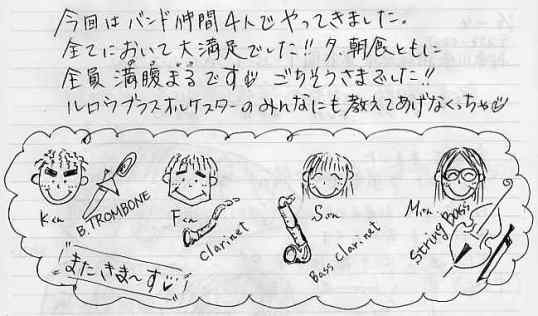 今回はバンド仲間4人でやってきました。
全てにおいて大満足でした!! 夕、朝食ともに
全員満腹まるです♡ ごちそうさまでした!!
ルロウブラスオルケスターのみんなにも教えてあげなくっちゃ♡
Ken
B.TROMBONE
Fen
Clarinet
Son
Bass Clarinet
Mon
String Bass
またきまーす♡